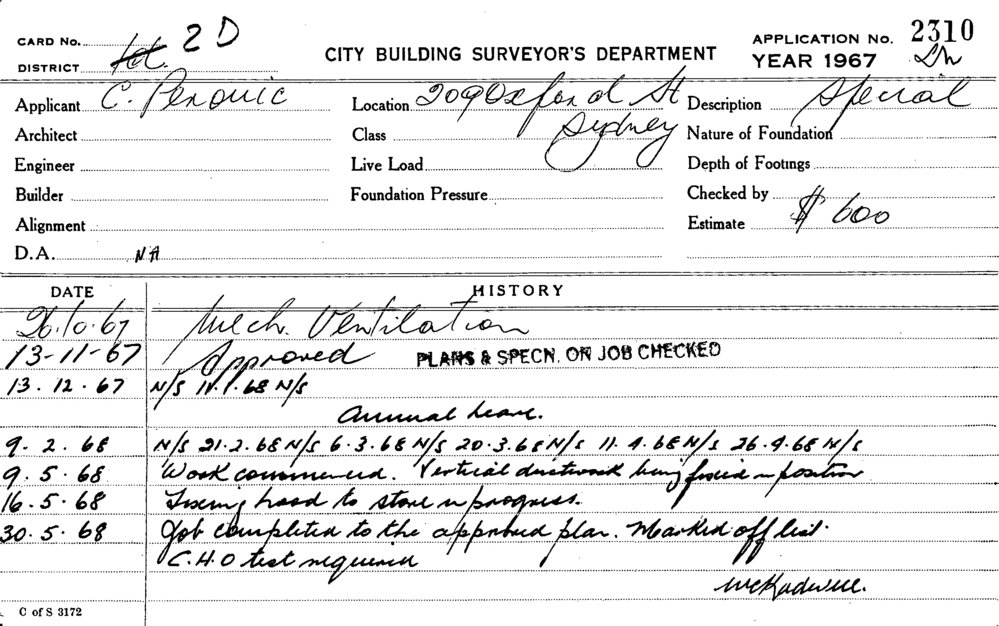 CARD No. 2D
DISTRICT
CITY BUILDING SURVEYOR'S DEPARTMENT
APPLICATION No. 2310
YEAR 1967
Applicant C. Penovic
Location 209 Oxford St
Sydney
Description Special
Architect
Class
Nature of Foundation
Engineer
Live Load
Depth of Footings
Builder
Foundation Pressure
Checked by
Alignment
Estimate $ 600
D.A. NA
DATE HISTORY
26.10.67 Mech. Ventilation
13-11-67 Approved PLANS & SPECN. ON JOB CHECKED
13.12.67 N/S 11.1.68 N/S
Annual Leave.
9.2.68 N/S 21.2.68 N/S 6.3.68 N/S 20.3.68 N/S 11.4.68 N/S 26.4.68 N/S
9.5.68 Work commenced. Vertical ductwork being fixed in position
16.5.68 Fixing hood to stove in progress.
30.5.68 Job completed to the approved plan. Marked off list.
C.H.O test required
C of S 3172